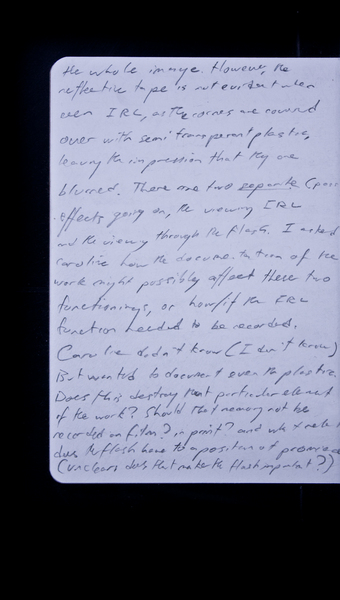 the whole image. However, the
reflective tape is not evident when
seen IRL, as the corners are covered
over with semi transparent plastic,
leaving the impression that they are
blurred. There are two separate
effects going on, the viewing IRL
and the viewing through the flash. I asked
Caroline how the documentation of the
work might possibly affect these two
functionings, or how/if the IRL
function needed to be recorded.
Caroline didn't know (I don't know)
But wanted to document even the plastic
Does this destroy that particular element
of the work? Should that memory not be
recorded on film? in print? and what
does the flash have to a position of
(unclear, does that make the flash important?)